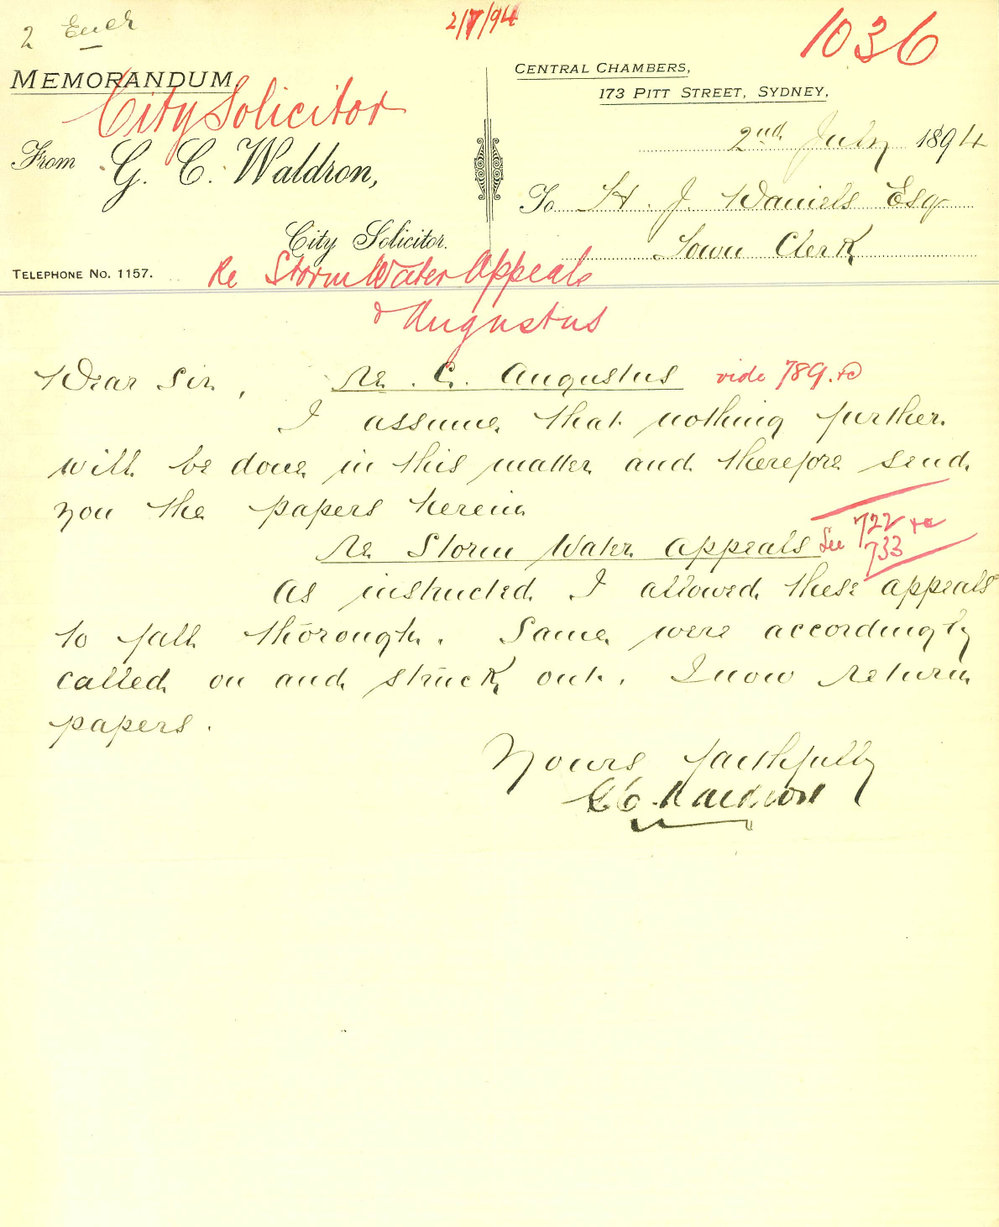 2 Encl
2/7/94
1036
MEMORANDUM
City Solicitor
From G. C. Waldron,
City Solicitor.
TELEPHONE No. 1157.
CENTRAL CHAMBERS,
173 PITT STREET, SYDNEY,
2nd July 1894
To H. J. Daniels Esq
Town Clerk
Re Storm Water Appeals
& Augustus
Dear Sir, Re. C. Augustus vide 789. &c
I assume that nothing further
will be done in this matter and therefore send
you the papers herein
Re Storm Water appeals See 722 &c
733
As instructed I allowed these appeals
to fall thorough. Same were accordingly
called on and struck out. I now return
papers.
Yours faithfully
G C. Waldron